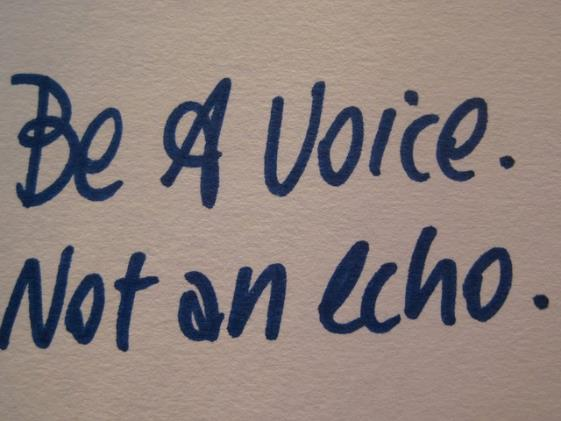 Be A Voice.
Not an echo.